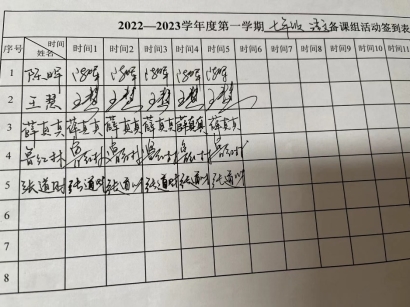 2022—2023学年度第一学期 七年级 语文 备课组活动签到表
序号 时间 姓名 时间1 时间2 时间3 时间4 时间5 时间6 时间7 时间8 时间9 时间10 时间11
1 陈晖 陈晖 陈晖 陈晖 陈晖 陈晖
2 王慧 王慧 王慧 王慧 王慧 王慧
3 薛真真 薛真真 薛真真 薛真真 薛真真 薛真真
4 鲁红林 鲁红林 鲁红林 鲁红林 鲁红林 鲁红林
5 张道时 张道时 张道时 张道时 张道时 张道时
6
7
8